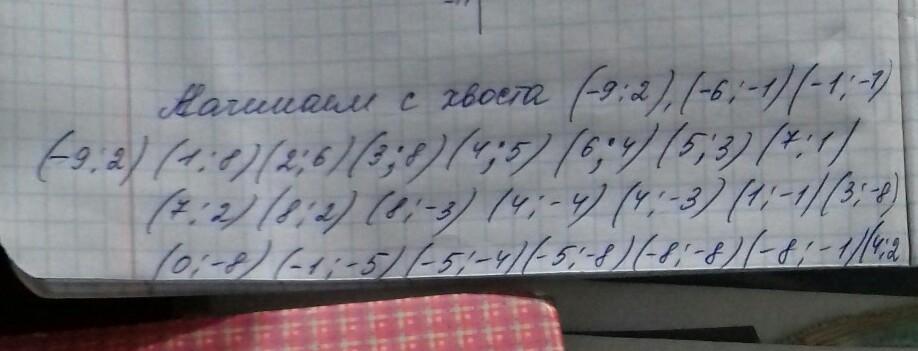 Начинаем с хвоста (-9;2), (-6;-1) (-1;-1)
(-9;2) (1;8) (2;6) (3;8) (4;5) (6;4) (5;3) (7;1)
(7;2) (8;2) (8;-3) (4;-4) (4;-3) (1;-1) (3;-8)
(0;-8) (-1;-5) (-5;-4) (-5;-8) (-8;-8) (-8;-1) (4;2